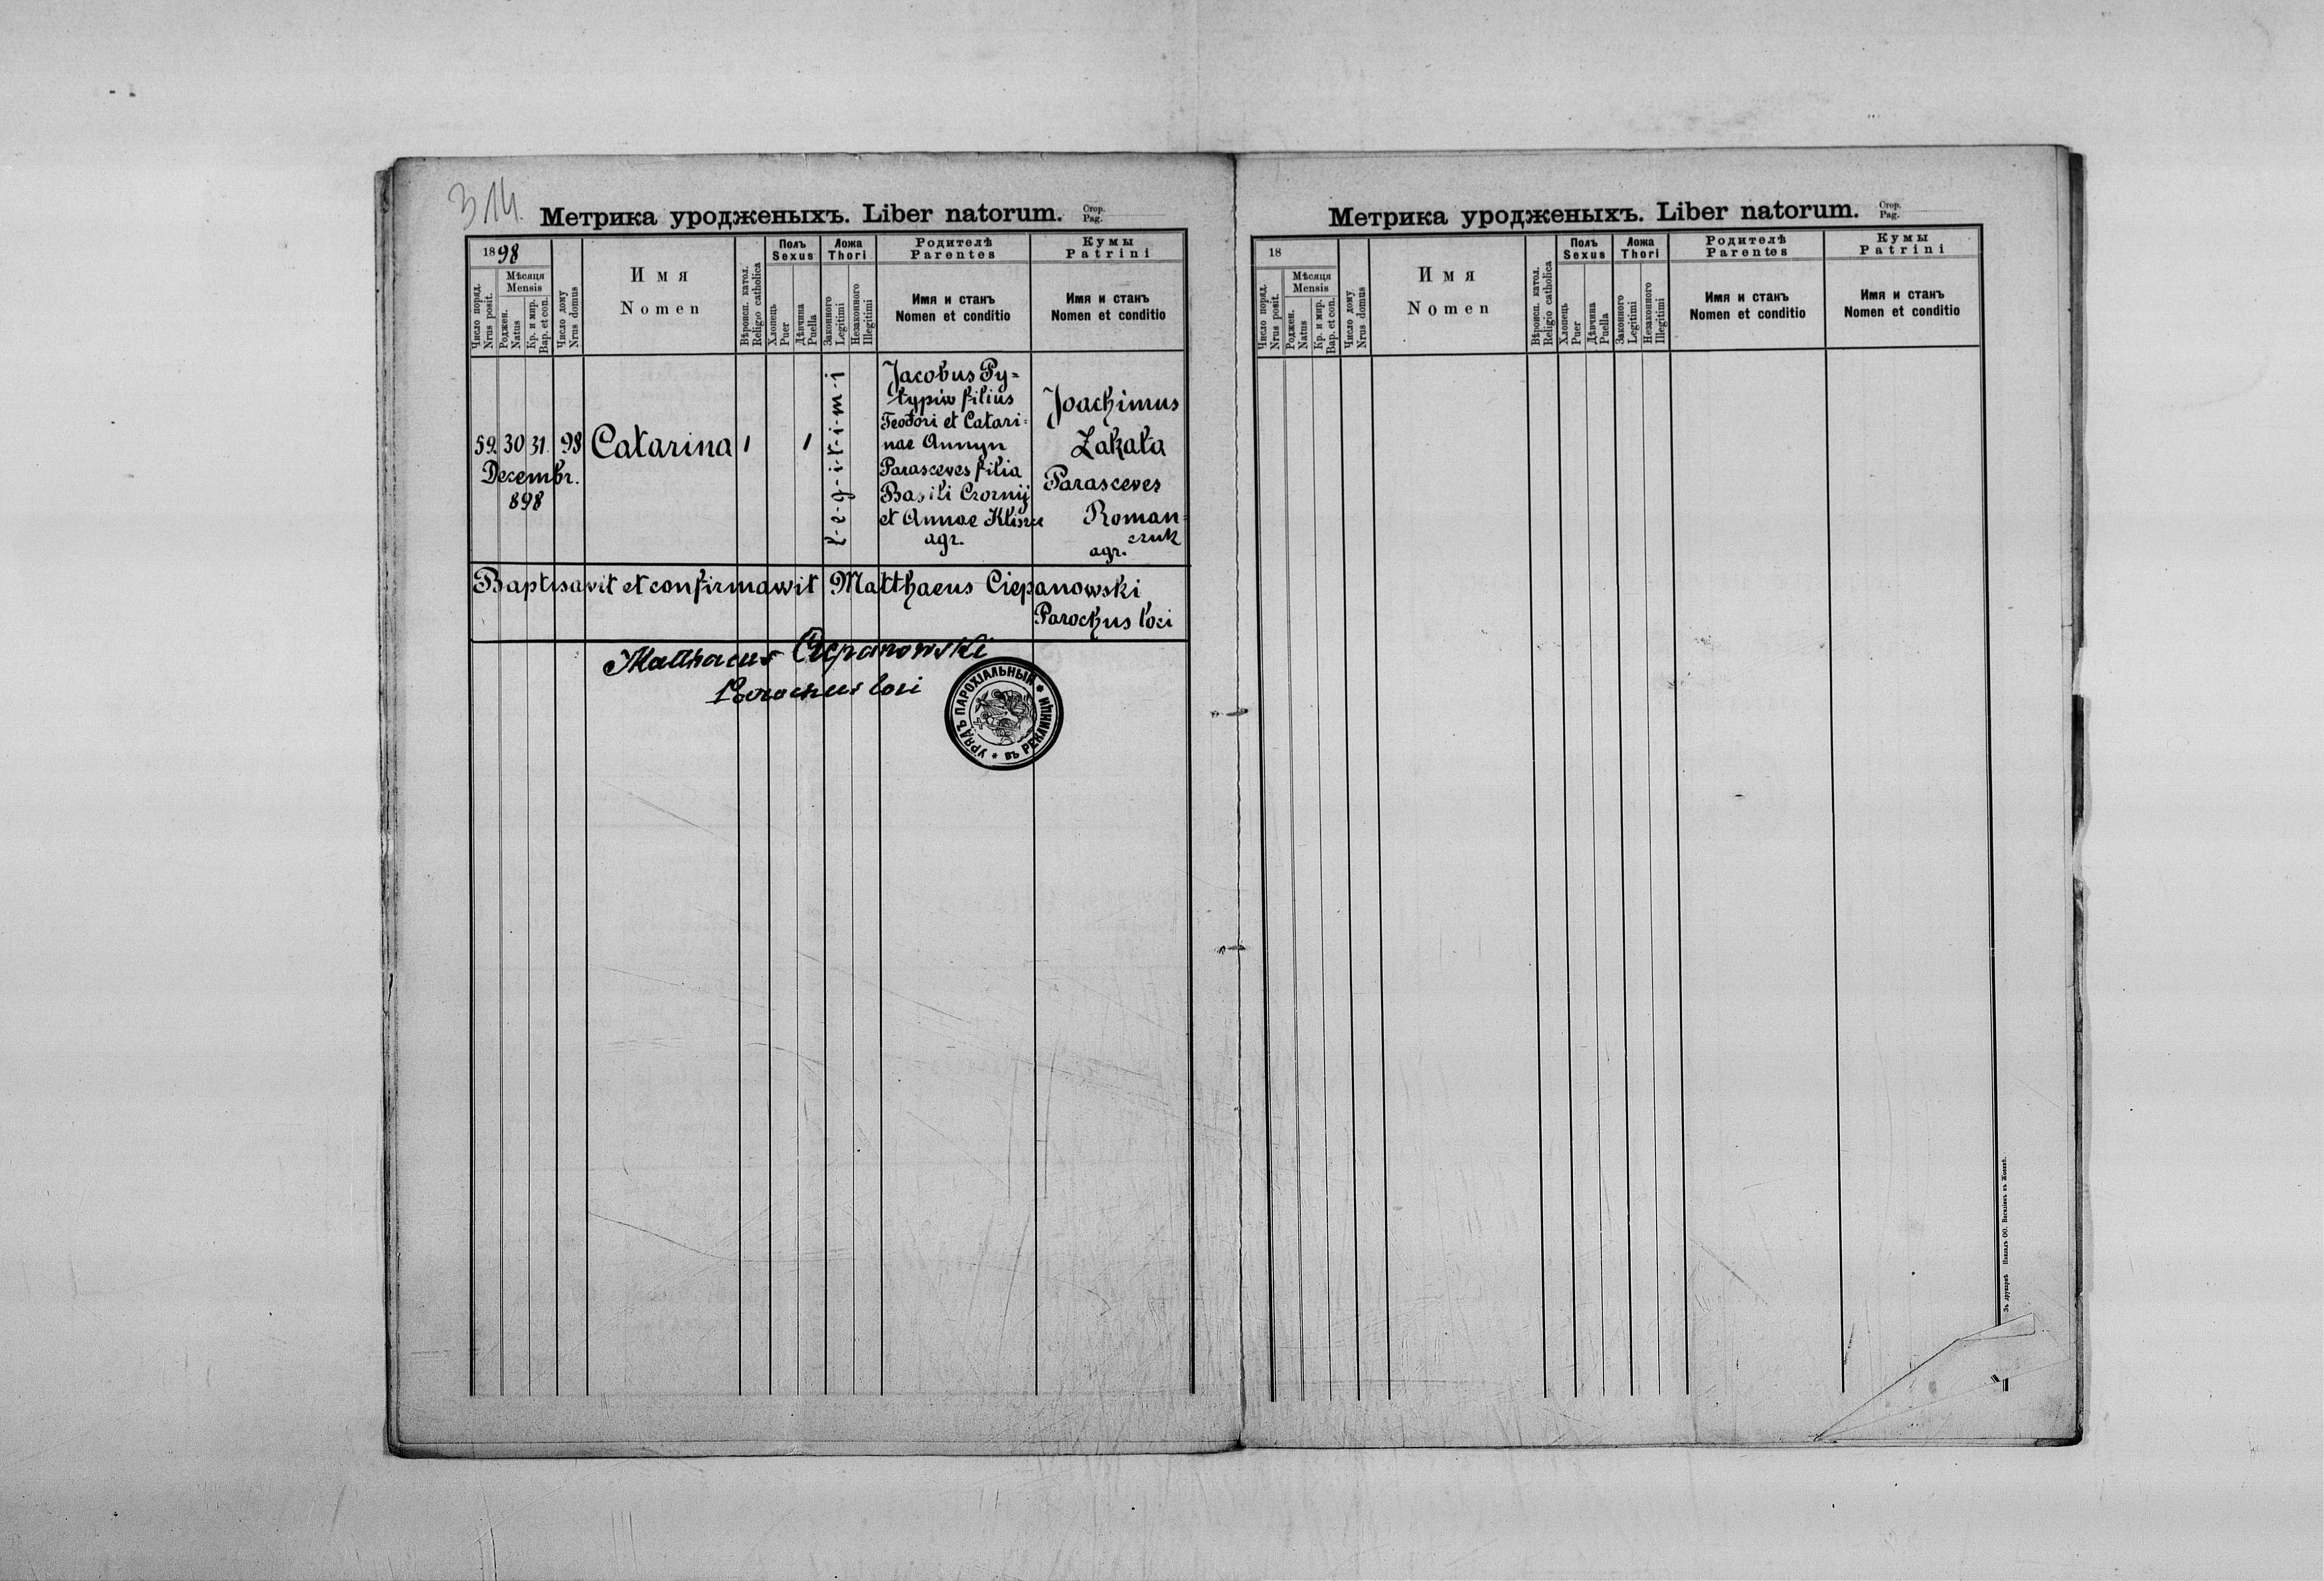 314.
Метрика уродженыхъ. Liber natorum. Стор. Pag.
1898
Число поряд. Nrus posit.
Мѣсяця Mensis
Роджен. Natus
Кр. и мир. Bap. et con.
Число дому Nrus domus
Имя
Nomen
Вѣроисп. катол. Religio catholica
Полъ Sexus
Хлопець Puer
Дѣвчина Puella
Ложа Thori
Законного Legitimi
Незаконного Illegitimi
Родителѣ Parentes
Имя и станъ
Nomen et conditio
Кумы Patrini
Имя и станъ
Nomen et conditio
59. 30 31. 98 Catarina 1 1
Decembr.
898
l-e-g-i-t-i-m-i
Jacobus Py-
typiw filius
Teodori et Catari-
nae Annyn
Parasceves filia
Basili Czornij
et Annae
agr.
Joachimus
Zakala
Parasceves
Roman-
czuk
agr.
Baptisavit et confirmawit Matthaeus Ciepanowski
Parochus loci
Matthaeus Ciepanowski
Parochus loci
УРЯДЪ ПАРОХІАЛЬНЫЙ * ВЪ РЕКЛИНЦИ *
Метрика уродженыхъ. Liber natorum. Стор. Pag.
18
Число поряд. Nrus posit.
Мѣсяця Mensis
Роджен. Natus
Кр. и мир. Bap. et con.
Число дому Nrus domus
Имя
Nomen
Вѣроисп. катол. Religio catholica
Полъ Sexus
Хлопець Puer
Дѣвчина Puella
Ложа Thori
Законного Legitimi
Незаконного Illegitimi
Родителѣ Parentes
Имя и станъ
Nomen et conditio
Кумы Patrini
Имя и станъ
Nomen et conditio
Зъ друкарнѣ Накладъ ОО. Василіянъ въ Жовквѣ.